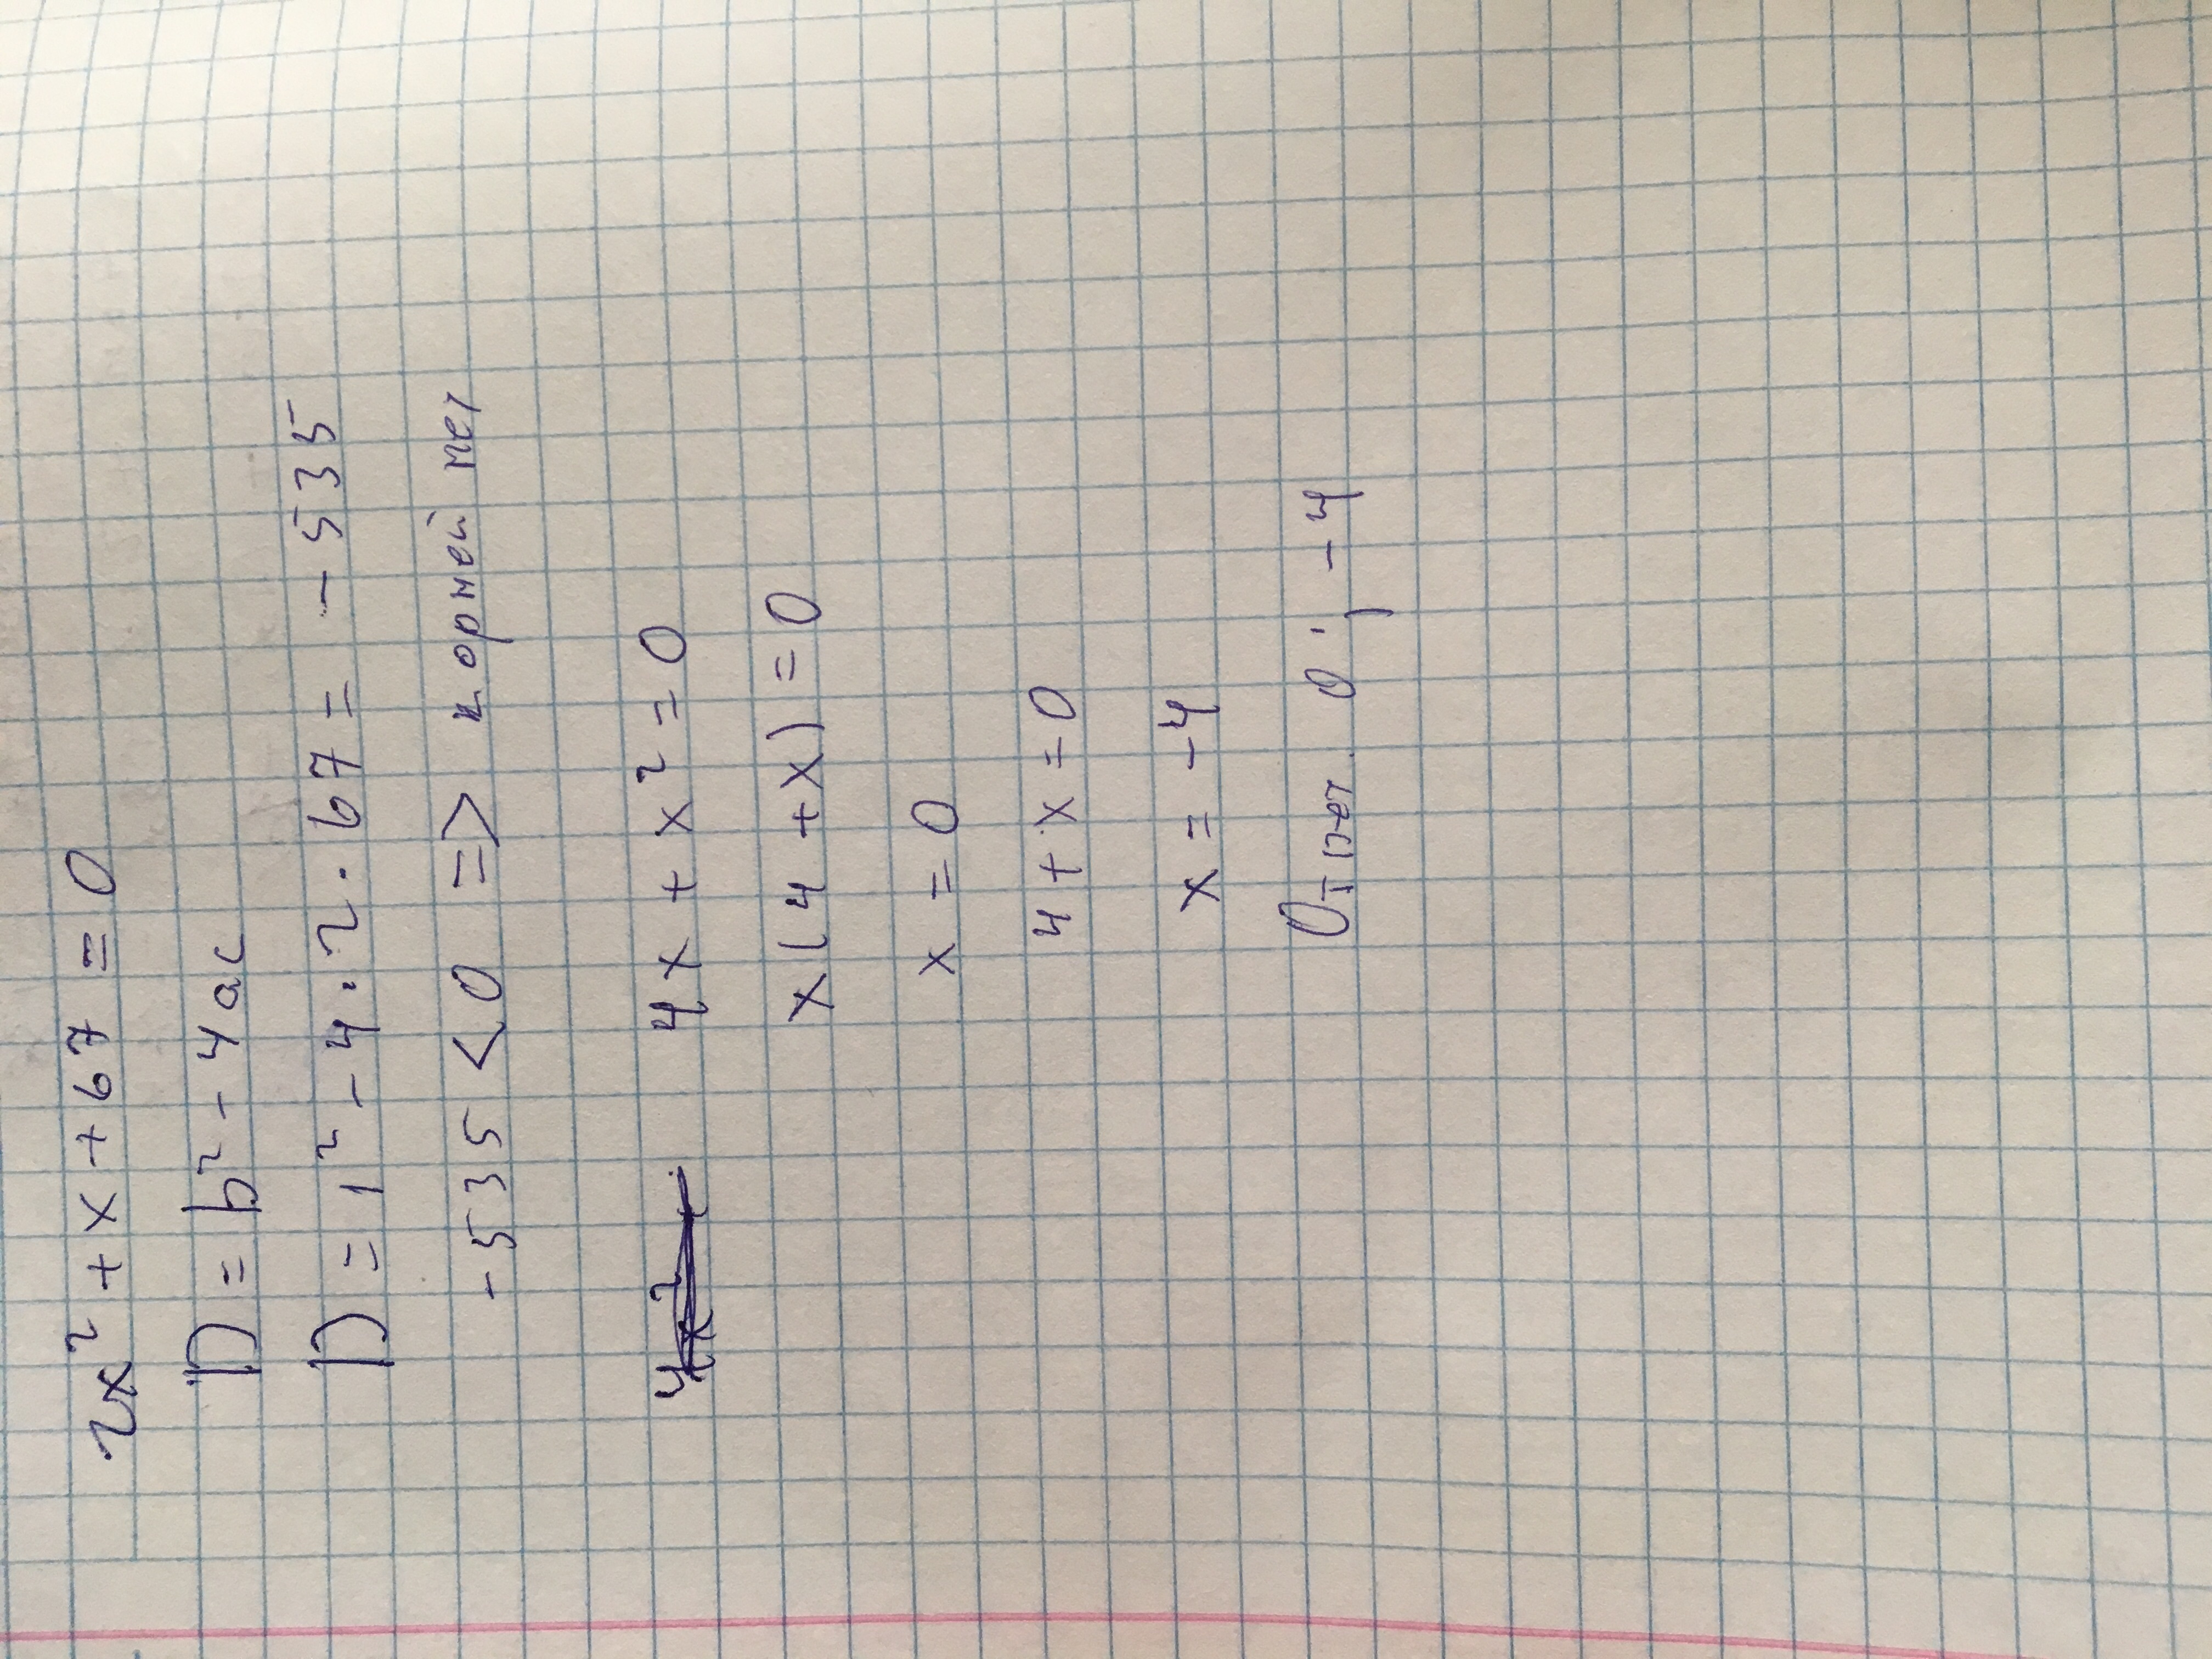 2x² + x + 67 = 0
D = b² - 4ac
D = 1² - 4 · 2 · 67 = - 535
- 535 < 0 => корней нет
4x + x² = 0
x(4 + x) = 0
x = 0
4 + x = 0
x = - 4
Ответ. 0 ; - 4